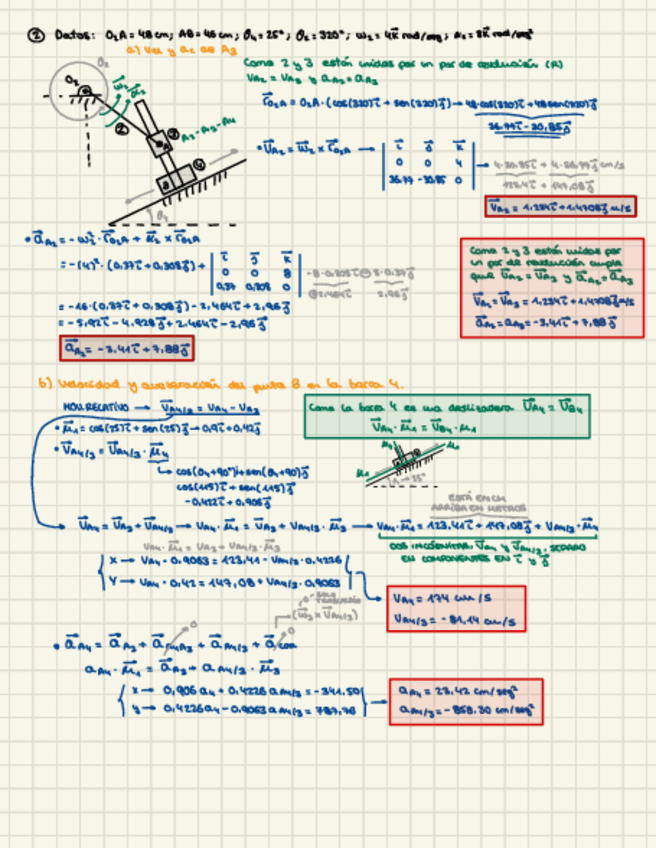 ② Datos: O₂A = 48 cm; AB = 46 cm; θ₄ = 25°; θ₂ = 320°; ω₂ = 4k rad/seg; α₂ = 8k rad/seg²
a) Vel y ac de A₃
Como 2 y 3 están unidas por un par de revolución (R)
V_A₂ = V_A₃ y a_A₂ = a_A₃
r_O₂A = O₂A · (cos(320)i + sen(320)j) → 48·cos(320)i + 48sen(320)j
36.77i - 30.85j
O₂
θ₂
ω₂
α₂
②
③
A₂ - A₃ - A₄
A
B
④
θ₄
• V_A₂ = ω₂ × r_O₂A → | i j k |
0 0 4
36.77 -30.85 0
4·30.85i + 4·36.77j cm/s
123.4i + 147,08j
V_A₂ = 1.234i + 1.4708j m/s
• a_A₂ = -ω₂² · r_O₂A + α₂ × r_O₂A
= -(4)² · (0.37i + 0.308j) + | i j k |
0 0 8
0.37 0.308 0
-8·0.308i ⊖ 8·0.37j
⊖ 2.464i 2,96j
= -16·(0.37i + 0.308j) - 2,464i + 2,96j
= -5,92i - 4,928j + 2,464i - 2,96j
a_A₂ = -3,41i + 7,88j
Como 2 y 3 están unidas por
un par de revolución cumple
que V_A₂ = V_A₃ y a_A₂ = a_A₃
V_A₂ = V_A₃ = 1.234i + 1.4708j m/s
a_A₂ = a_A₃ = -3,41i + 7,88j
b) Velocidad y aceleración del punto B en la barra 4.
MOV. RELATIVO → V_A4/3 = V_A4 - V_A3
• μ₁ = cos(25)i + sen(25)j → 0,9i + 0,42j
• V_A4/3 = V_A4/3 · μ₃
→ cos(θ₄+90°)i + sen(θ₄+90)j
cos(115)i + sen(115)j
-0,422i + 0,906j
Como la barra 4 es una deslizadera V_A4 = V_B4
V_A4 · μ₁ = V_B4 · μ₁
μ₁
ESTÁ EN CM
ARRIBA EN METROS
V_A4 = V_A3 + V_A4/3 → V_A4 · μ₁ = V_A3 + V_A4/3 · μ₃ → V_A4 · μ₁ = 123,41i + 147,08j + V_A4/3 · μ₃
V_A4 · μ₁ = V_A3 + V_A4/3 · μ₃
DOS INCÓGNITAS, V_A4 y V_A4/3, SEPARO
EN COMPONENTES EN i y j
X → V_A4 · 0.9063 = 123,41 - V_A4/3 · 0.4226
Y → V_A4 · 0.42 = 147,08 + V_A4/3 · 0.9063
V_A4 = 174 cm/s
V_A4/3 = -81.14 cm/s
(ω₃ × V_A4/3)
• a_A4 = a_A3 + a_A4A3 + a_A4/3 + a_cor
0
0
a_A4 · μ₁ = a_A3 + a_A4/3 · μ₃
X → 0,906 a₄ + 0.4226 a_A4/3 = -341.50
y → 0,4226 a₄ - 0.9063 a_A4/3 = 787.76
a_A4 = 23.42 cm/seg²
a_A4/3 = -858.30 cm/seg²